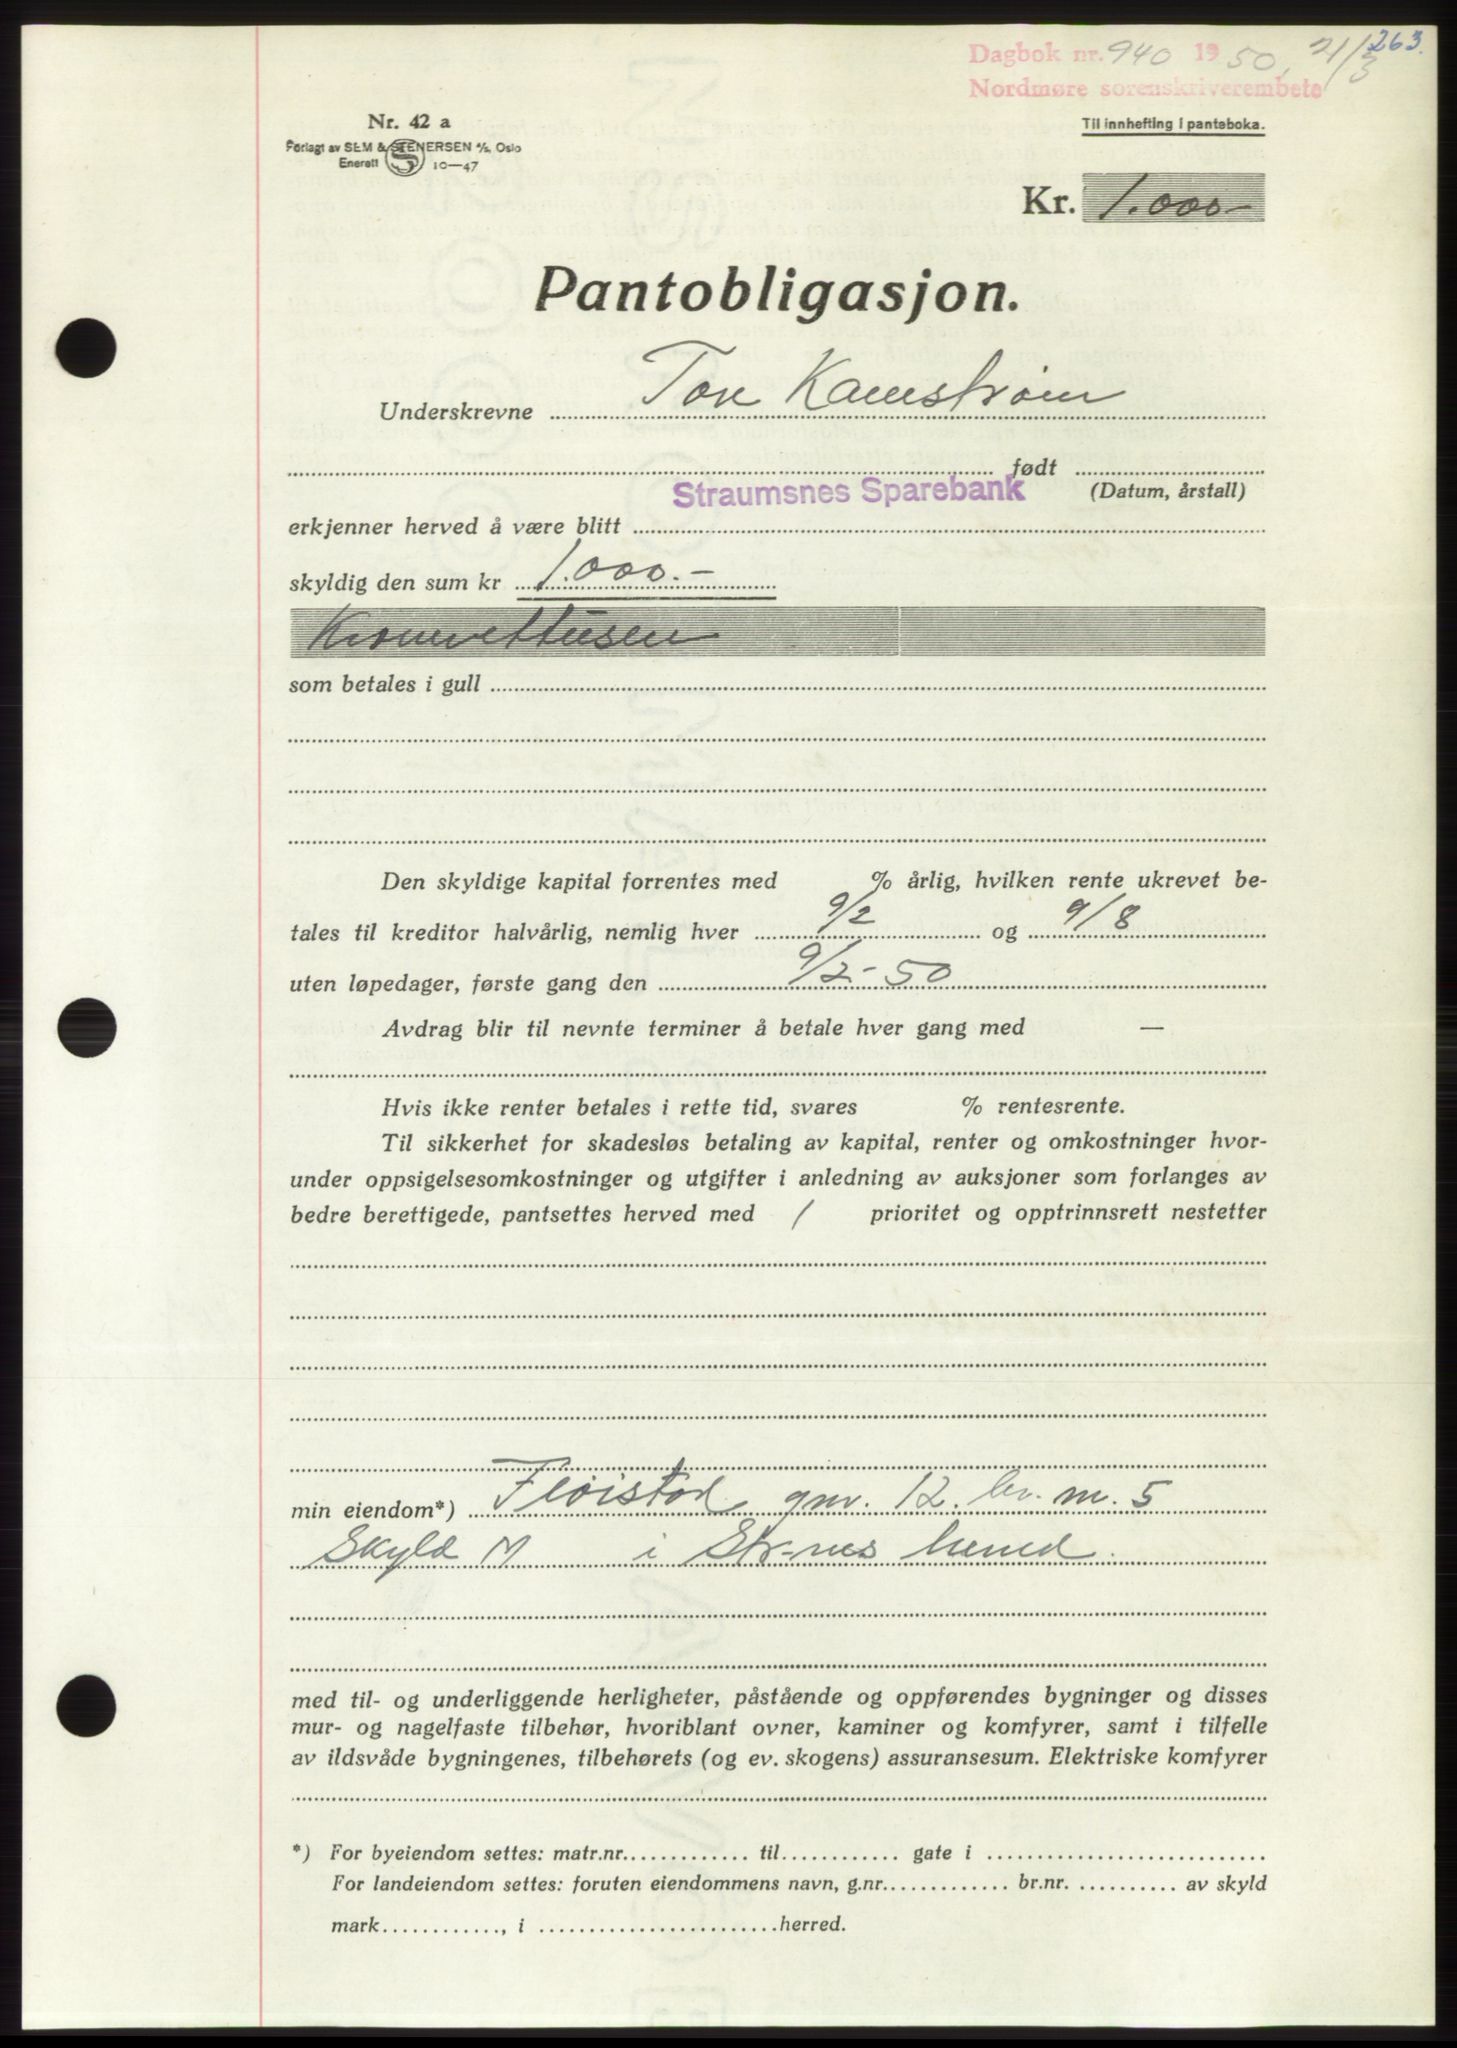 263.
Dagbok nr. 940 1950, 21/3
Nordmøre sorenskriverembete
Nr. 42 a
Forlagt av SEM & STENERSEN A/S, Oslo
Enerett 10—47
Til innhefting i panteboka.
Kr. 1.000-
Pantobligasjon.
Underskrevne Tore Kamstrøm
født
(Datum, årstall)
Straumsnes Sparebank
erkjenner herved å være blitt
skyldig den sum kr 1.000.-
Kroner ettusen
som betales i gull
Den skyldige kapital forrentes med % årlig, hvilken rente ukrevet be-
tales til kreditor halvårlig, nemlig hver 9/2 og 9/8
uten løpedager, første gang den 9/2-50
Avdrag blir til nevnte terminer å betale hver gang med —
Hvis ikke renter betales i rette tid, svares % rentesrente.
Til sikkerhet for skadesløs betaling av kapital, renter og omkostninger hvor-
under oppsigelsesomkostninger og utgifter i anledning av auksjoner som forlanges av
bedre berettigede, pantsettes herved med 1 prioritet og opptrinnsrett nestetter
min eiendom*) Fløistad gnr. 12. br. nr. 5
Skyld M i Str-nes herred.
med til- og underliggende herligheter, påstående og oppførendes bygninger og disses
mur- og nagelfaste tilbehør, hvoriblant ovner, kaminer og komfyrer, samt i tilfelle
av ildsvåde bygningenes, tilbehørets (og ev. skogens) assuransesum. Elektriske komfyrer
*) For byeiendom settes: matr.nr. til gate i
For landeiendom settes: foruten eiendommens navn, g.nr. br.nr. av skyld
mark , i herred.